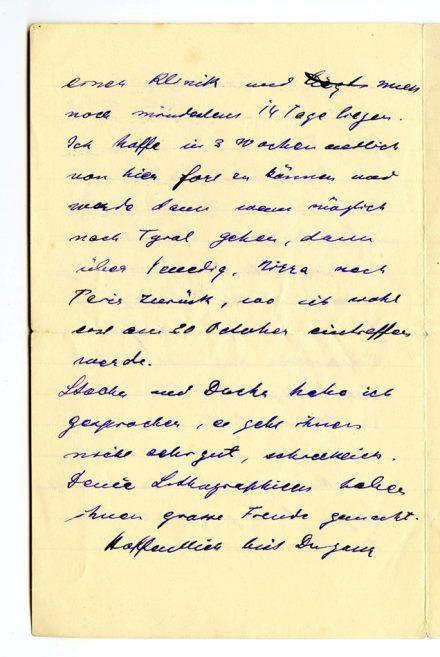 einer Klinik und muss
noch mindestens 14 Tage liegen.
Ich hoffe in 3 Wochen endlich
von hier fort zu können und
werde dann wenn möglich
nach Tyrol gehen, dann
über Venedig, Nizza nach
Paris zurück, wo ich wohl
erst am 20 October eintreffen
werde.
und habe ich
gesprochen, es geht ihnen
nicht sehr gut,
Deine Lithographien haben
ihnen grosse Freude gemacht.
Hoffentlich bist Du ganz